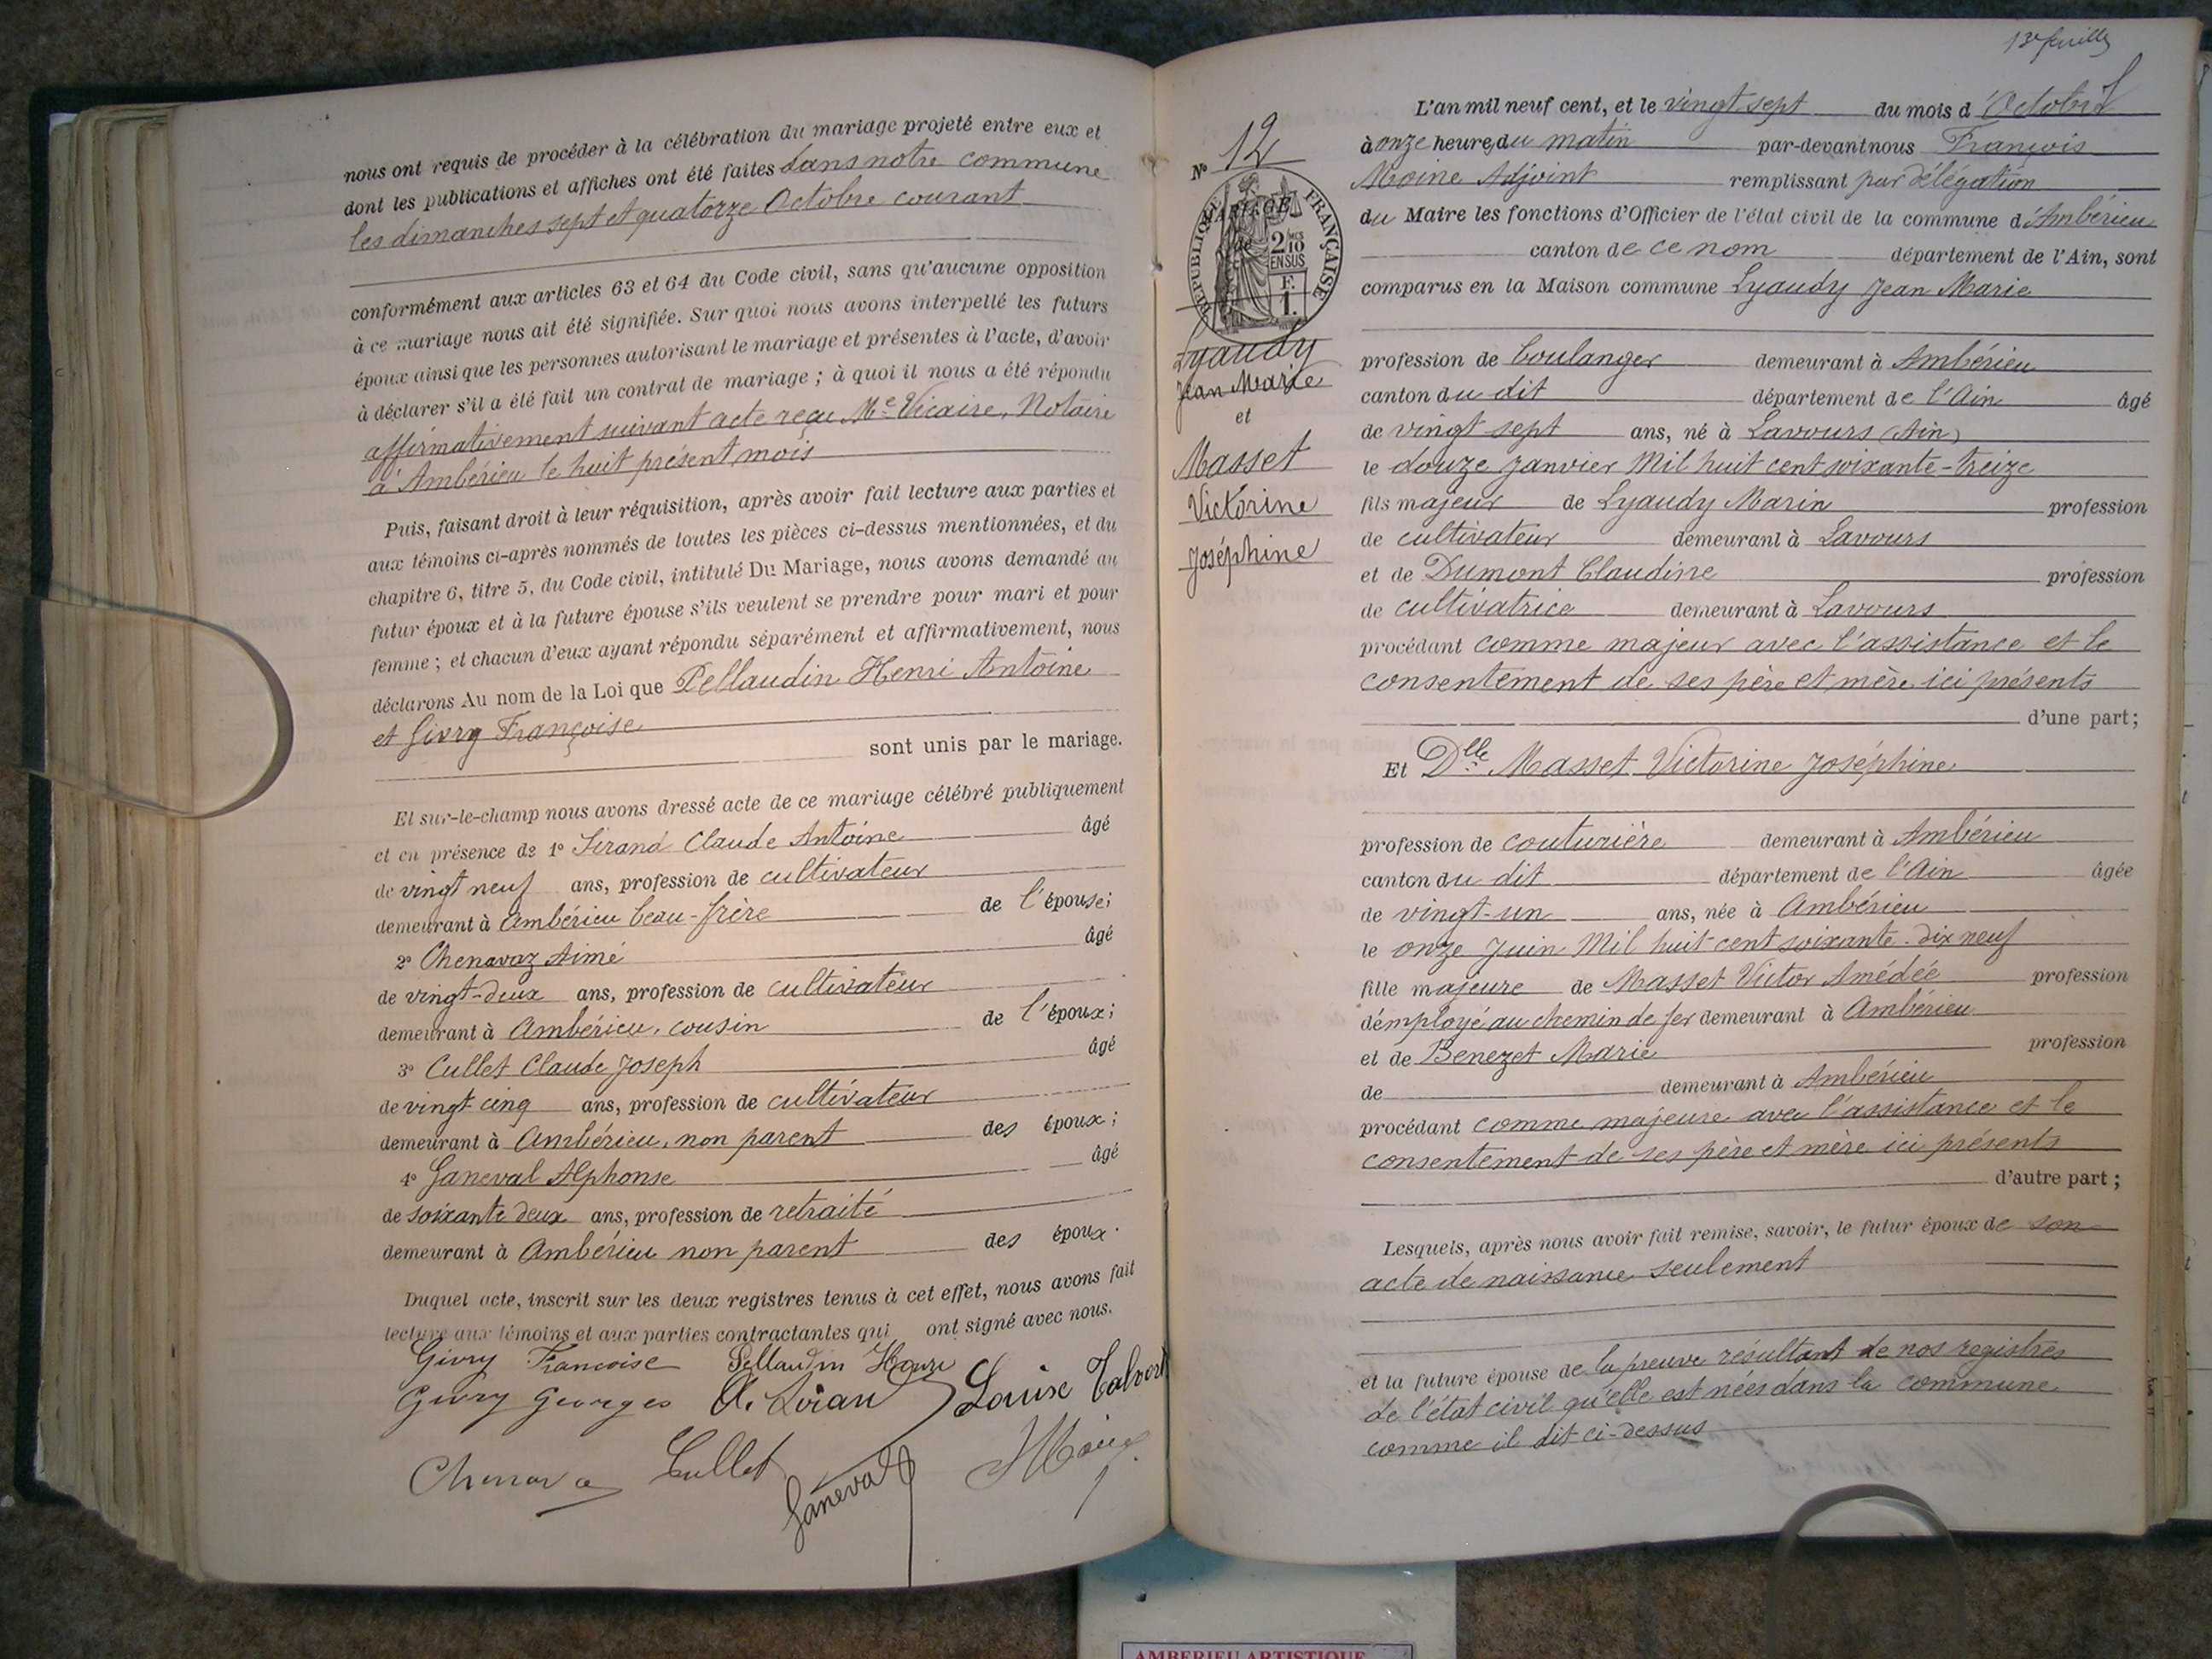 nous ont requis de procéder à la célébration du mariage projeté entre eux et
dont les publications et affiches ont été faites dans notre commune
les dimanches sept et quatorze Octobre courant
conformément aux articles 63 et 64 du Code civil, sans qu'aucune opposition
à ce mariage nous ait été signifiée. Sur quoi nous avons interpellé les futurs
époux ainsi que les personnes autorisant le mariage et présentes à l'acte, d'avoir
à déclarer s'il a été fait un contrat de mariage ; à quoi il nous a été répondu
affirmativement suivant acte reçu Me Vicaire, Notaire
à Ambérieu le huit présent mois
Puis, faisant droit à leur réquisition, après avoir fait lecture aux parties et
aux témoins ci-après nommés de toutes les pièces ci-dessus mentionnées, et du
chapitre 6, titre 5, du Code civil, intitulé Du Mariage, nous avons demandé au
futur époux et à la future épouse s'ils veulent se prendre pour mari et pour
femme ; et chacun d'eux ayant répondu séparément et affirmativement, nous
déclarons Au nom de la Loi que Pellaudin Henri Antoine
et Givry Françoise
sont unis par le mariage.
Et sur-le-champ nous avons dressé acte de ce mariage célébré publiquement
et en présence de 1° Sirand Claude Antoine âgé
de vingt neuf ans, profession de cultivateur
demeurant à Ambérieu beau-frère de l'épouse;
2° Chenavaz Aimé âgé
de vingt-deux ans, profession de cultivateur
demeurant à Ambérieu, cousin de l'époux;
3° Cullet Claude Joseph âgé
de vingt cinq ans, profession de cultivateur
demeurant à Ambérieu, non parent des époux;
4° Ganeval Alphonse âgé
de soixante deux ans, profession de retraité
demeurant à Ambérieu non parent des époux.
Duquel acte, inscrit sur les deux registres tenus à cet effet, nous avons fait
lecture aux témoins et aux parties contractantes qui ont signé avec nous.
Givry Françoise Pellaudin Henri
Givry Georges Louise
Cullet
Ganeval
13e feuille
N° 12
RÉPUBLIQUE FRANÇAISE
2/10 EN SUS
F. 1.
MARIAGE
de
Lyaudy
Jean Marie
et
Masset
Victorine
Joséphine
L'an mil neuf cent, et le vingt sept du mois d'Octobre
à onze heures du matin par-devant nous François
Moine Adjoint remplissant par délégation
du Maire les fonctions d'Officier de l'état civil de la commune d'Ambérieu
canton de ce nom département de l'Ain, sont
comparus en la Maison commune Lyaudy Jean Marie
profession de boulanger demeurant à Ambérieu
canton du dit département de l'Ain âgé
de vingt sept ans, né à Lavours (Ain)
le douze janvier Mil huit cent soixante-treize
fils majeur de Lyaudy Marin profession
de cultivateur demeurant à Lavours
et de Dumont Claudine profession
de cultivatrice demeurant à Lavours
procédant comme majeur avec l'assistance et le
consentement de ses père et mère ici présents
d'une part;
Et Dlle Masset Victorine Joséphine
profession de couturière demeurant à Ambérieu
canton du dit département de l'Ain âgée
de vingt-un ans, née à Ambérieu
le onze Juin Mil huit cent soixante-dix neuf
fille majeure de Masset Victor Amédée profession
d'employé au chemin de fer demeurant à Ambérieu
et de Benezet Marie profession
de demeurant à Ambérieu
procédant comme majeure avec l'assistance et le
consentement de ses père et mère ici présents
d'autre part ;
Lesquels, après nous avoir fait remise, savoir, le futur époux de son
acte de naissance seulement
et la future épouse de la preuve résultant de nos registres
de l'état civil qu'elle est nées dans la commune
comme il dit ci-dessus
AMBERIEU ARTISTIQUE